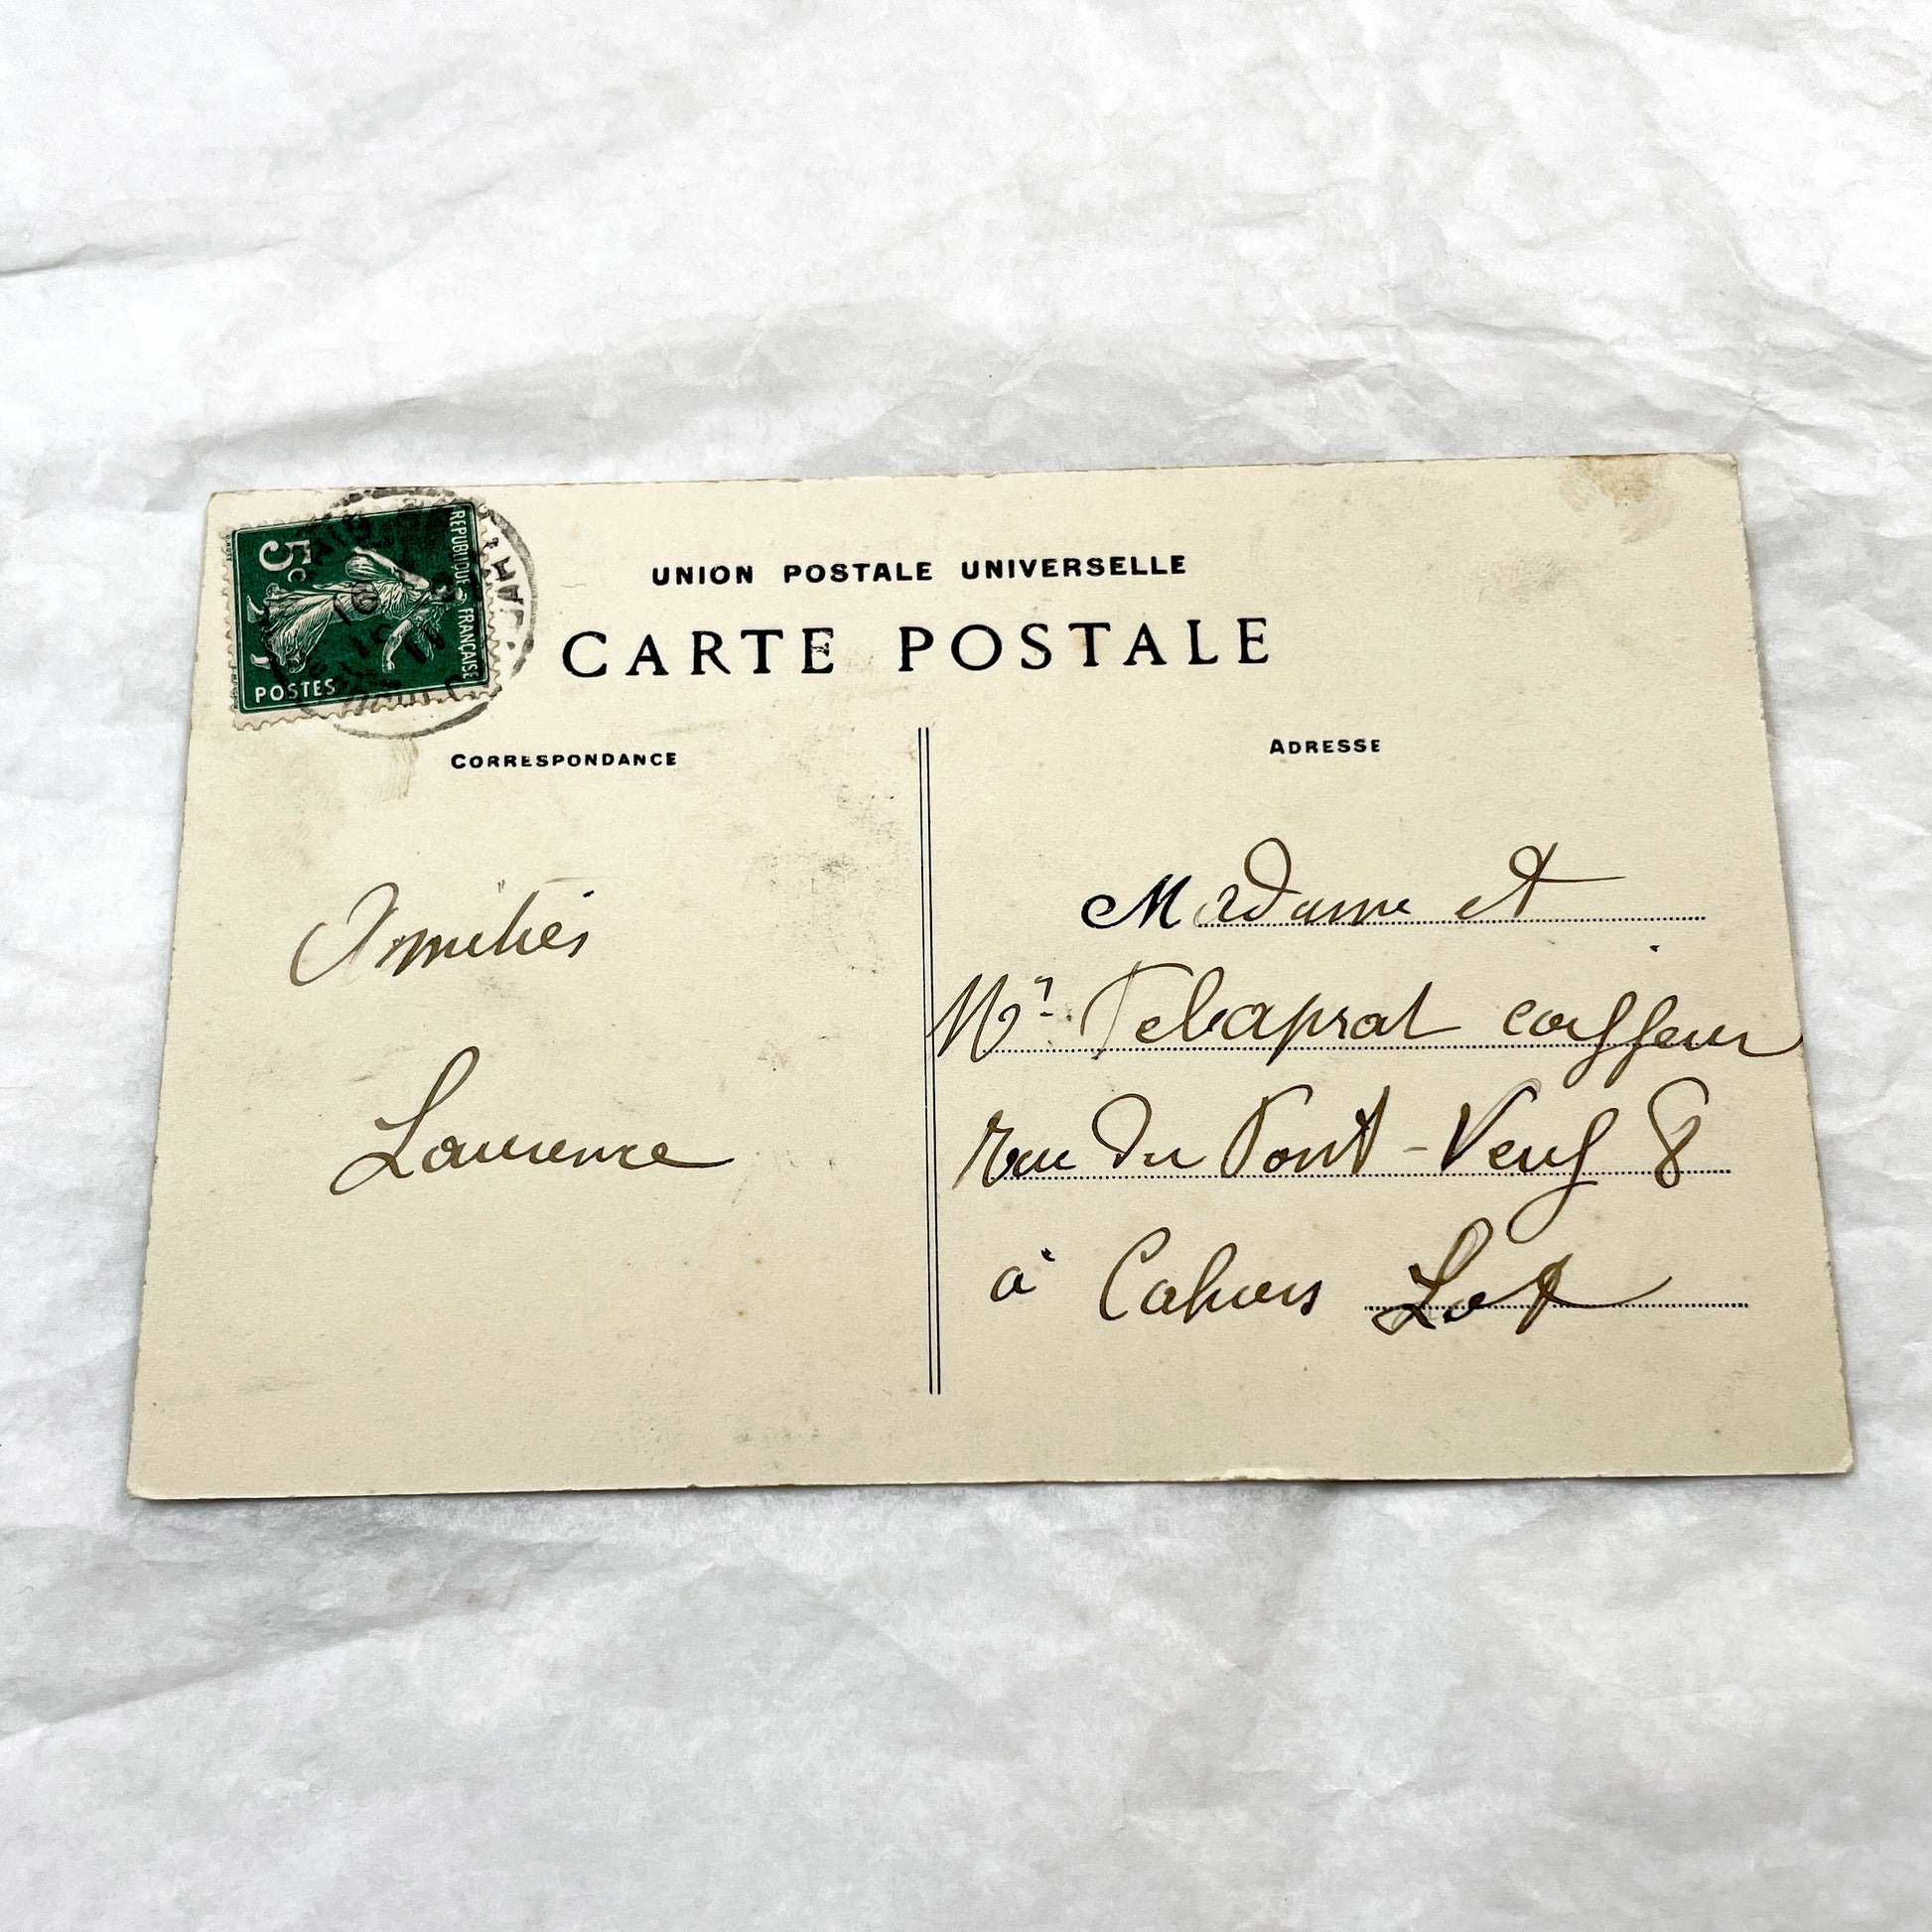 5c
REPUBLIQUE FRANÇAISE
POSTES
UNION POSTALE UNIVERSELLE
CARTE POSTALE
CORRESPONDANCE
Amitiés
Laurence
ADRESSE
Madame et
Mr. Pebaprat coiffeur
rue du Pont-Neuf 8
à Cahors Lot